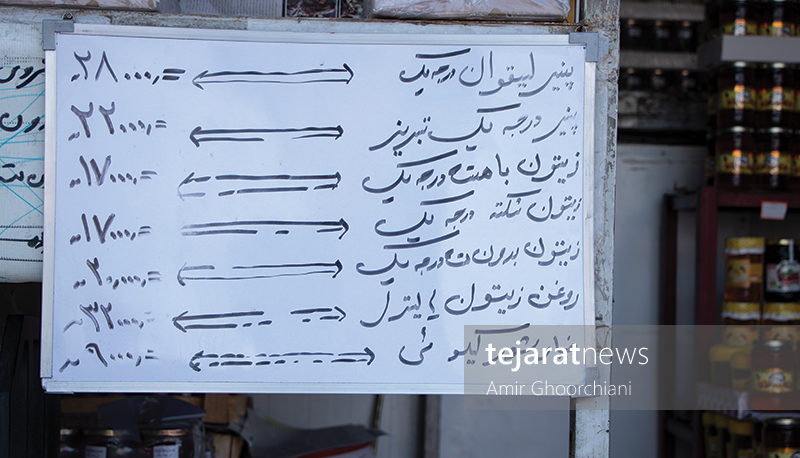 پنیر لیقوان درجه یک ۲۸۰۰۰
پنیر درجه یک تبریز ۲۲۰۰۰
زیتون با هسته درجه یک ۱۷۰۰۰
زیتون شکسته درجه یک ۱۷۰۰۰
زیتون بدون هسته درجه یک ۲۰۰۰۰
روغن زیتون ۱ لیتر ۳۲۰۰۰
کیلوئی ۹۰۰۰
tejaratnews
Amir Ghoorchiani